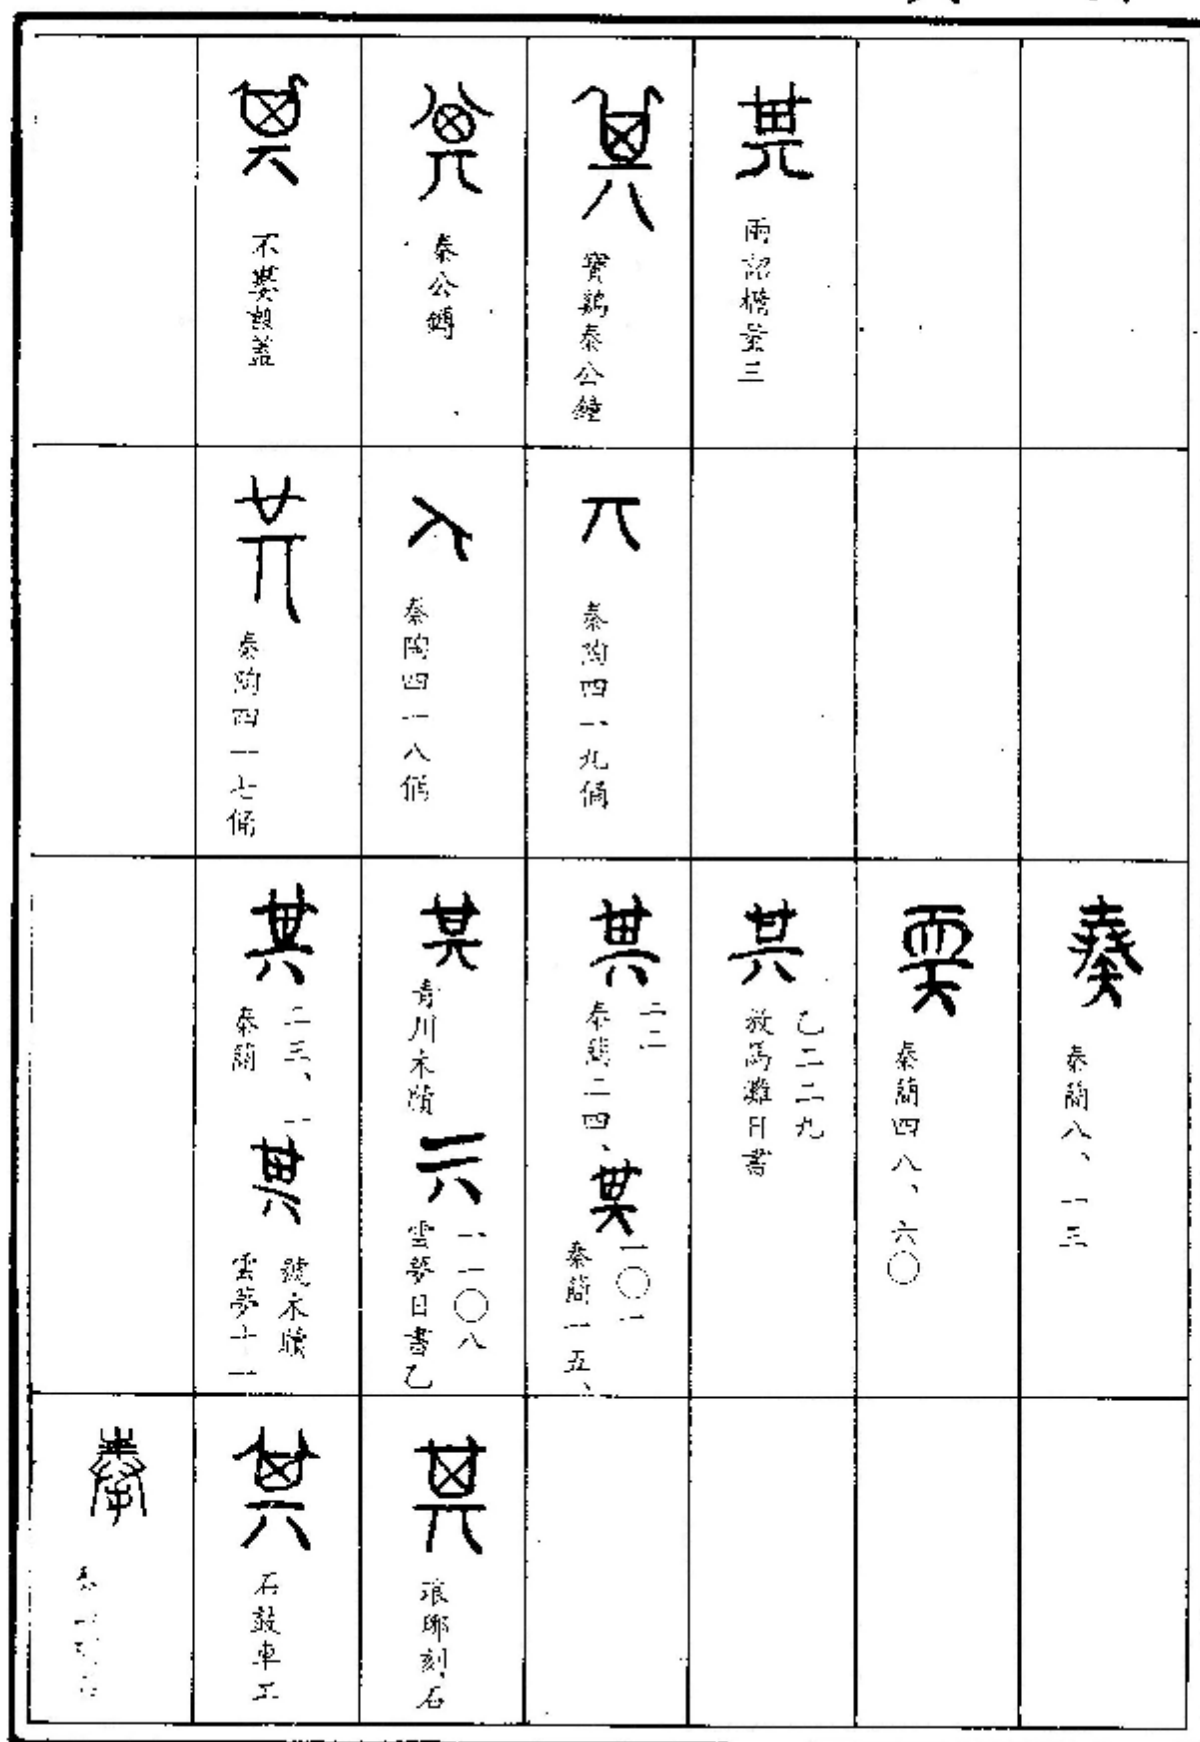 其
不𡢁𣪘蓋
其
秦公鎛
其
寶鷄秦公鐘
其
兩詔橢量三
其
秦陶四一七俑
秦陶四一八俑
丌
秦陶四一九俑
其
秦簡
二三、一
其
雲夢十一
號木牘
其
青川木牘
雲夢日書乙
一一〇八
其
秦簡二四、
二二
其
秦簡一五、
一〇一
其
放馬灘日書
乙二二九
秦簡四八、六〇
奏
秦簡八、一三
奉
其
石鼓車工
其
琅琊刻石